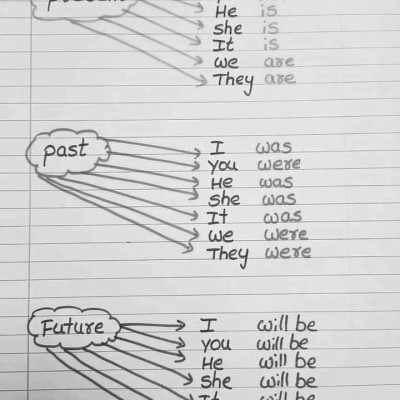 He is
she is
It is
we are
They are
past
I was
you were
He was
she was
It was
we were
They were
Future
I will be
you will be
He will be
she will be
It will be